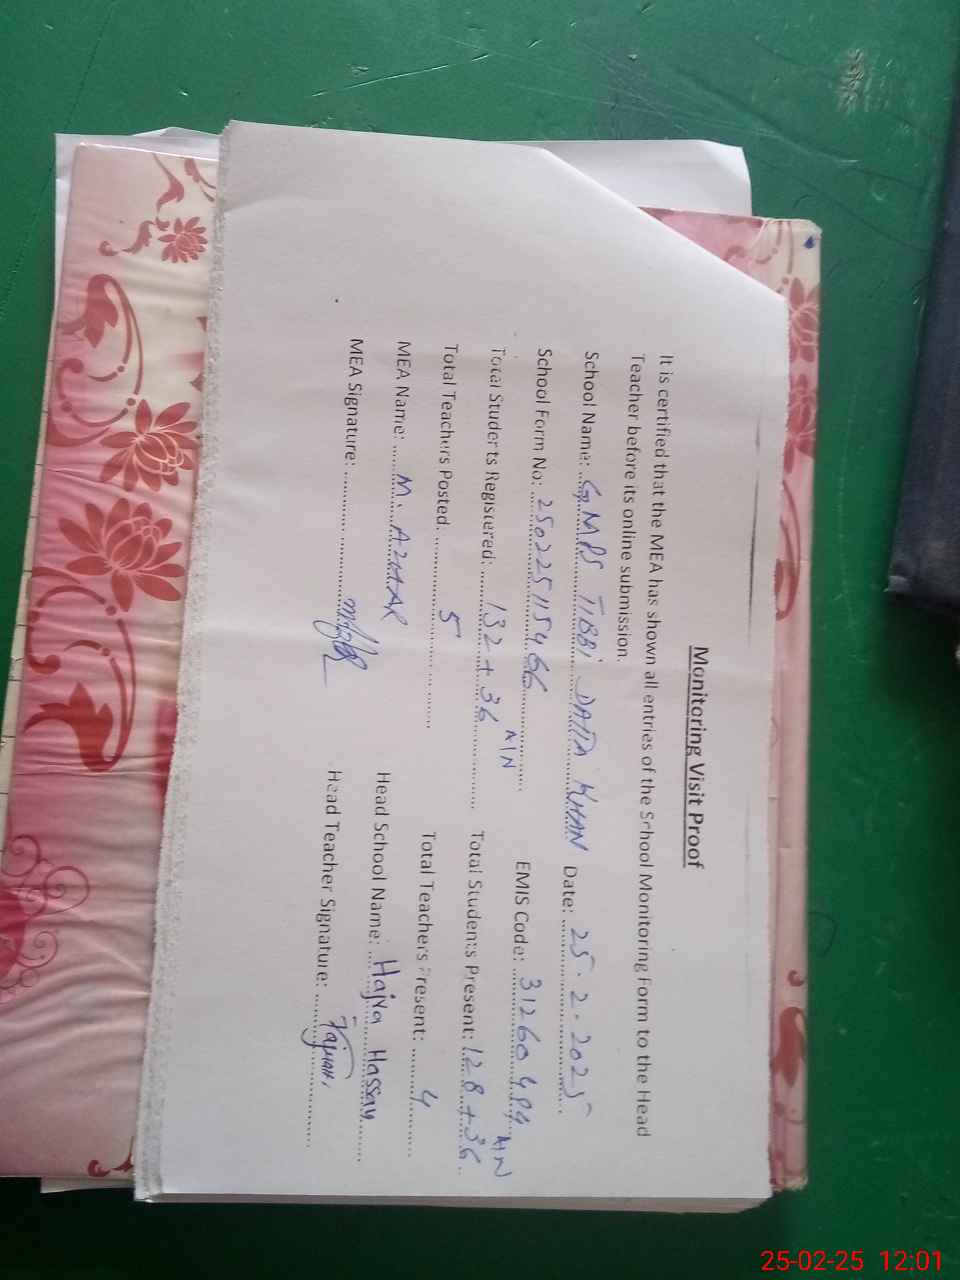 Monitoring Visit Proof
It is certified that the MEA has shown all entries of the School Monitoring Form to the Head
Teacher before its online submission.
School Name: GMPS TIBBI DATTA KHAN Date: 25.2.2025
School Form No: 250225115466 EMIS Code: 31260489
Total Students Registered: 132+36 Total Students Present: 128+36
Total Teachers Posted: 5 Total Teachers Present: 4
MEA Name: M. AZHAR Head School Name: Hajra Hassan
MEA Signature: Head Teacher Signature:
25-02-25 12:01